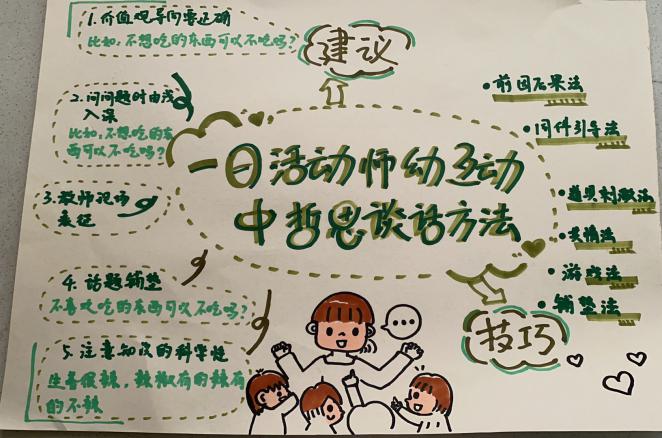 建议
1. 价值观导向要正确
比如：不想吃的东西可以不吃吗？
2. 问问题时由浅
入深
比如：不想吃的东
西可以不吃吗？
3. 教师现场
4. 话题铺垫
不喜欢吃的东西可以不吃吗？
5. 注意知识的科学性
生姜很辣，辣椒有的辣有
的不辣
一日活动师幼互动
中哲思谈话方法
技巧
•前因后果法
•同伴引导法
•道具刺激法
•共情法
•游戏法
•铺垫法